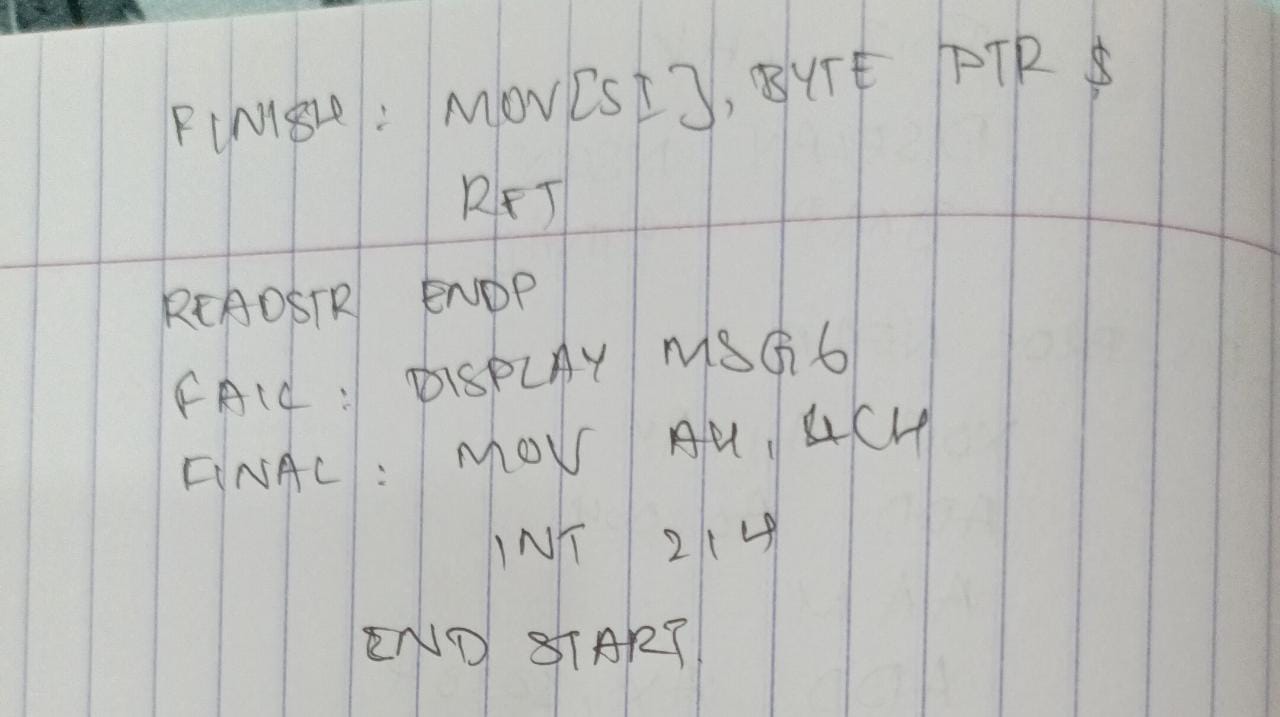 FINISH: MOV[SI], BYTE PTR $
RET
READSTR ENDP
FAIL: DISPLAY MSG6
FINAL: MOV AH, 4CH
INT 21H
END START